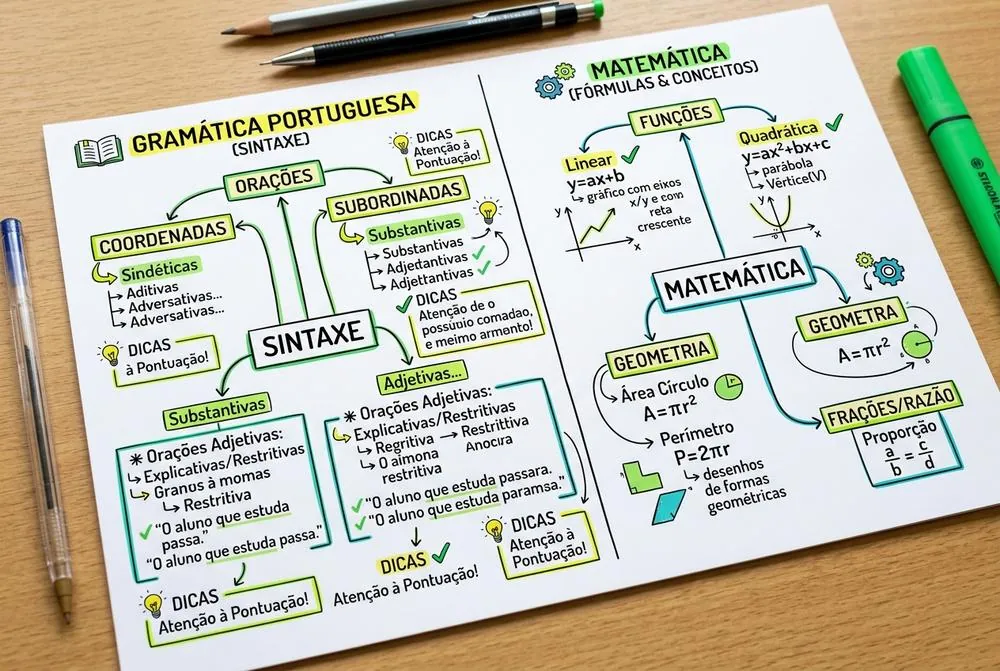 GRAMÁTICA PORTUGUESA
(SINTAXE)
DICAS
Atenção à
Pontuação!
ORAÇÕES
COORDENADAS
Sindéticas
Aditivas
Adversativas...
Adversativas...
DICAS
à Pontuação!
SUBORDINADAS
Substantivas
Substantivas
Adjertantivas
Adjettantivas
DICAS
Atenção de o
possúuio comadao,
e meimo armento!
SINTAXE
Substantivas
* Orações Adjetivas:
Explicativas/Restritivas
Granus à momas
Restritiva
"O aluno que estuda
passa."
"O aluno que estuda passa."
DICAS
Atenção à Pontuação!
Adjetivas...
* Orações Adjetivas:
Explicativas/Restritivas
Regritiva → Restrittiva
O aimona Anocıra
restritiva
"O aluno que estuda passara.
"O aluno que estuda paramsa."
DICAS
Atenção à Pontuação!
DICAS
Atenção à
Pontuação!
MATEMÁTICA
(FÓRMULAS & CONCEITOS)
FUNÇÕES
Linear
y=ax+b
gráfico com eixos
x/y e com
reta
crescente
y
x
Quadrática
y=ax²+bx+c
parábola
Vértice(V)
y
x
MATEMÁTICA
GEOMETRIA
Área Círculo
A=πr²
Perímetro
P=2πr
desenhos
de formas
geométricas
GEOMETRA
A=πr²
FRAÇÕES/RAZÃO
Proporção
a/b = c/d